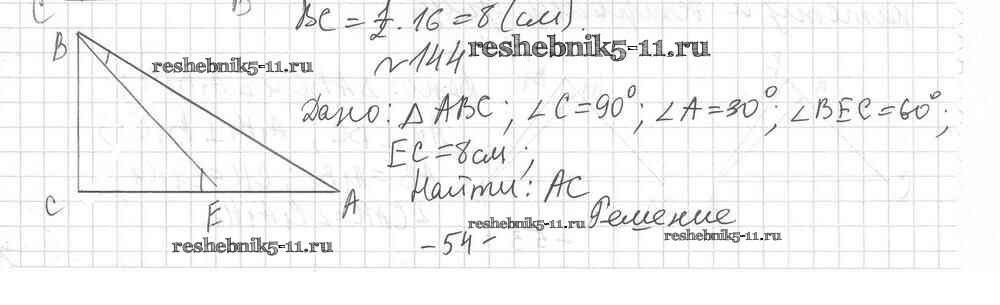 C B
BC = 1/2 · 16 = 8 (см).
№144
reshebnik5-11.ru
B
reshebnik5-11.ru
Дано: △ABC; ∠C=90°; ∠A=30°; ∠BEC=60°;
EC=8см;
Найти: AC
C E A
reshebnik5-11.ru
Решение
reshebnik5-11.ru
reshebnik5-11.ru
-54-